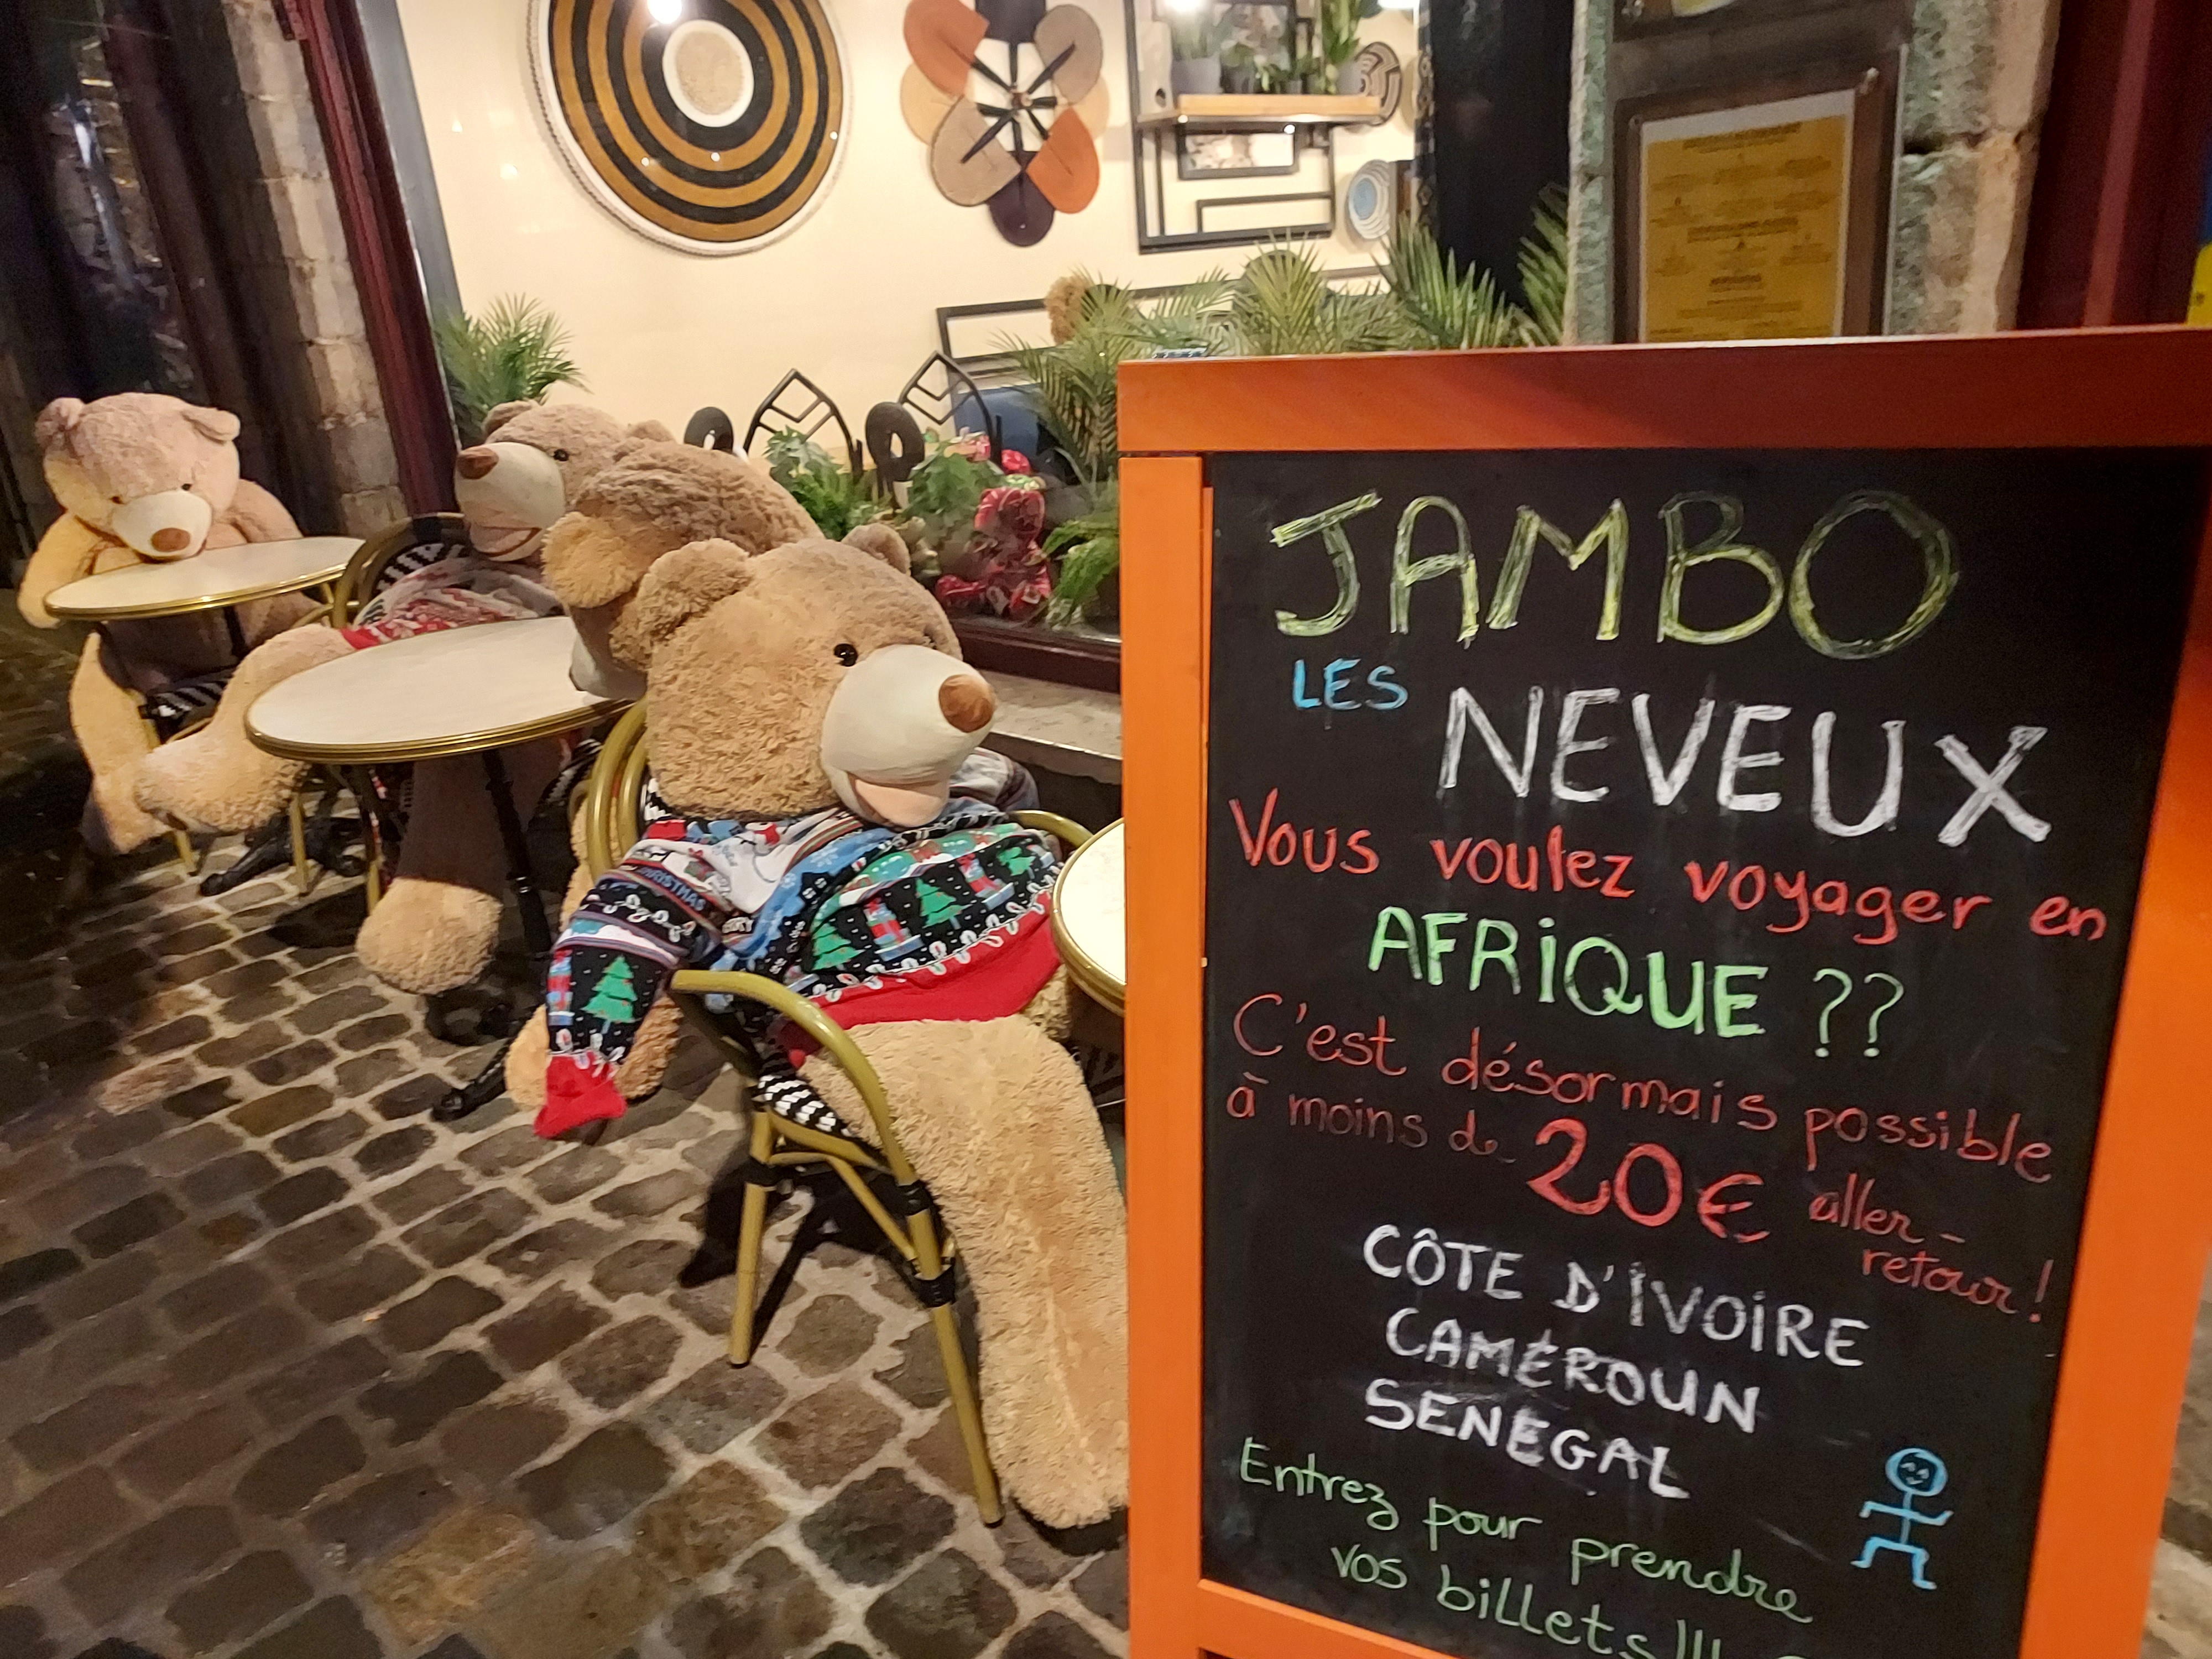 JAMBO
LES NEVEUX
Vous voulez voyager en
AFRIQUE ??
C'est désormais possible
à moins de 20€ aller-
retour !
CÔTE D'IVOIRE
CAMÉROUN
SENEGAL
Entrez pour prendre
vos billets!!!
CHRISTMAS